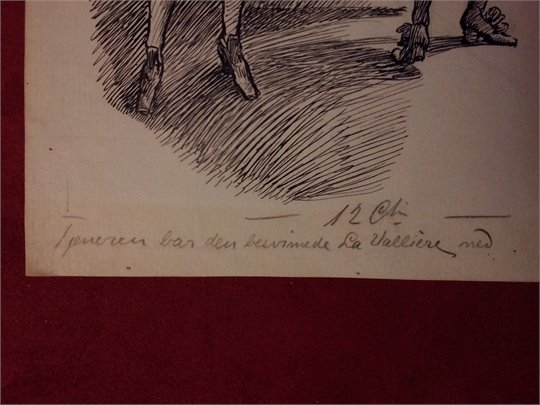 12 Ctm
Tjeneren bar den besvimede La Vallière ned